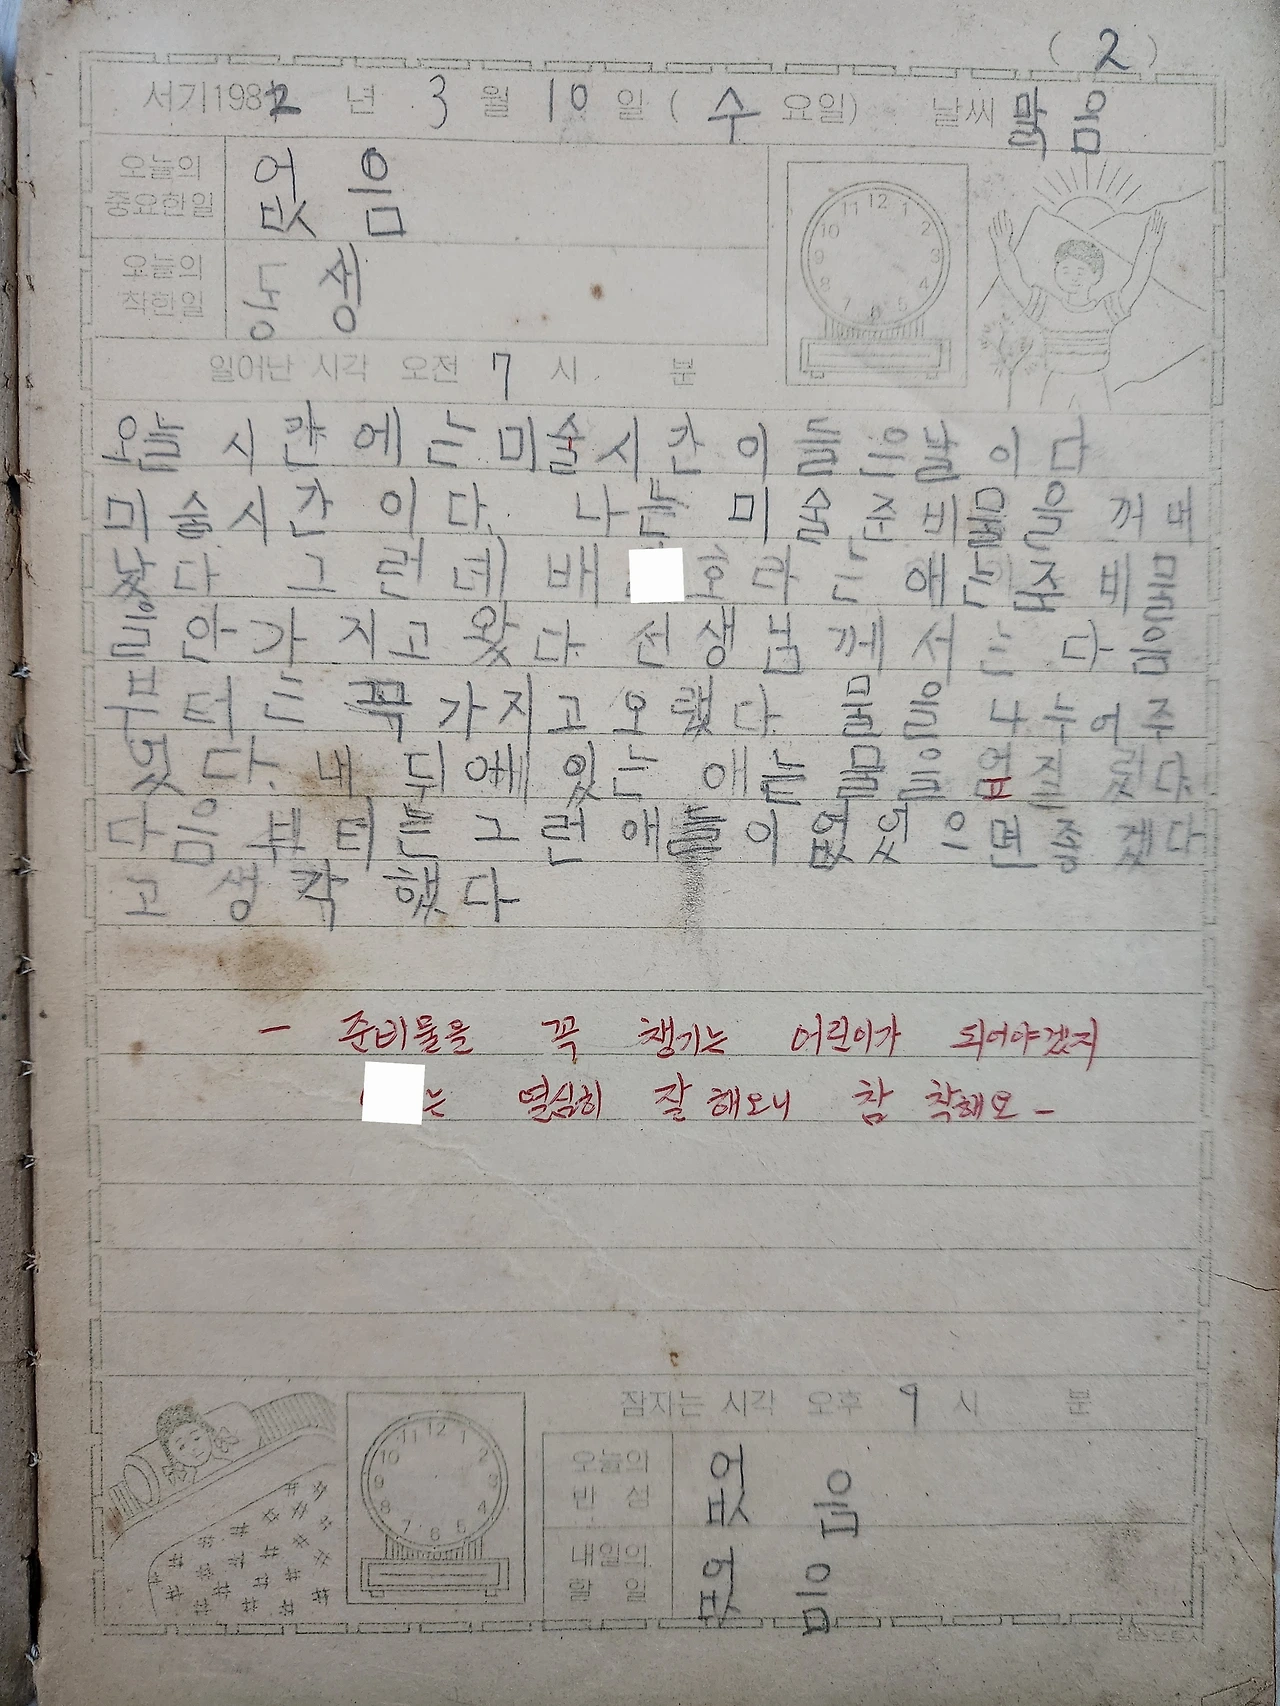 ( 2 )
서기1982 년 3 월 10 일 ( 수 요일) 날씨 맑음
오늘의 중요한일 없음
오늘의 착한일 동생
일어난 시각 오전 7 시 분
오늘 시간에는 미술시간이 들은날이다
미술시간이다. 나는 미술준비물을 꺼내
났다 그런데 배 호라는 애는 준비물
을 안가지고 왔다. 선생님께서는 다음
부터는 꼭 가지고 오랬다. 물을 나누어주
었다. 내 뒤에 있는 애는 물을 엎질렀다.
다음부터는 그런 애들이 없었으면 좋겠다
고 생각했다
- 준비물을 꼭 챙기는 어린이가 되어야겠지
는 열심히 잘 해오니 참 착해요 -
잠자는 시각 오후 9 시 분
오늘의 반성 없음
내일의 할일 없음